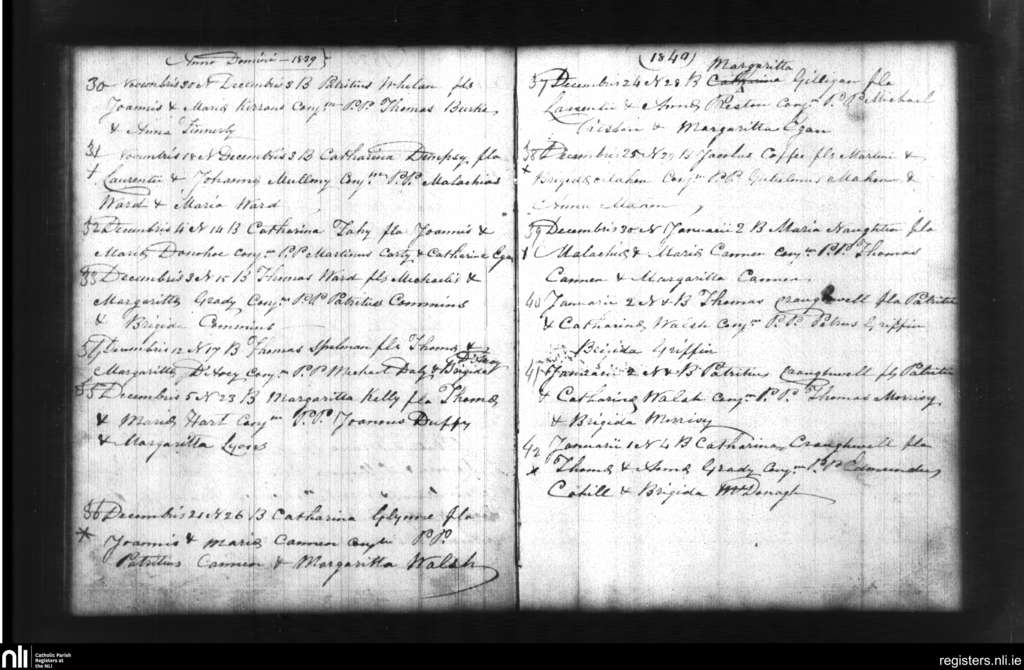 Anno Domini - 1839
30 Novembris 30 N Decembris 3 B Patritius Whelan fls
Joannis & Maria Kirrane Conjm P.P. Thomas Burke
& Anna Finnerty
31 Novembris 18 N Decembris 3 B Catharina Dempsy fla
Laurentii & Johanna Mullony Conjm P.P. Malachias
Ward & Maria Ward
32 Decembris 4 N 14 B Catharina Fahy fla Joannis &
Maria Donohoe conjm P.P. Martinus Carty & Catherine Egan
33 Decembris 3 N 15 B Thomas Ward fls Michaelis &
Margaritta Grady Conjm P.P. Patritius Commins
& Brigida Commins
34 Decembris 12 N 17 B Thomas Spelman fls Thoma &
Margaritta Divoy Conjm P.P. Michael Daly & Brigida
Divoy
35 Decembris 5 N 23 B Margaritta Kelly fla Thoma
& Maria Hart Conjm P.P. Joannes Duffy
& Margaritta Lyons
36 Decembris 21 N 26 B Catharina Glynne fla
Joannis & Maria Cannon conjm P.P.
Patritius Cannon & Margaritta Walsh
(1840)
Margaritta
37 Decembris 24 N 28 B Catharina Gilligan fla
Laurentii & Anna Preston Conjm P.P. Michael
& Margaritta Egan
38 Decembris 25 N 29 B Jacobus Coffee fls Martini &
Brigida Mahon Conjm P.P. Gulielmus Mahon &
Anna
39 Decembris 30 N Januarii 2 B Maria Naughton fla
Malachia & Maria Cannon conjm P.P. Thomas
Cannon & Margaritta Cannon
40 Januarii 2 N & B Thomas Craughwell fls Patritii
& Catharina Walsh Conjm P.P. Petrus Griffin
Brigida Griffin
41 Januarii 2 N & B Patritius Craughwell fls Patritii
& Catharina Walsh Conjm P.P. Thomas Morrisy
& Brigida Morrisy
42 Januarii 1 N 4 B Catharina Craughwell fla
Thoma & Anna Grady Conjm P.P. Edmundus
Cahill & Brigida McDonagh
nli Catholic Parish
Registers at
the NLI
registers.nli.ie